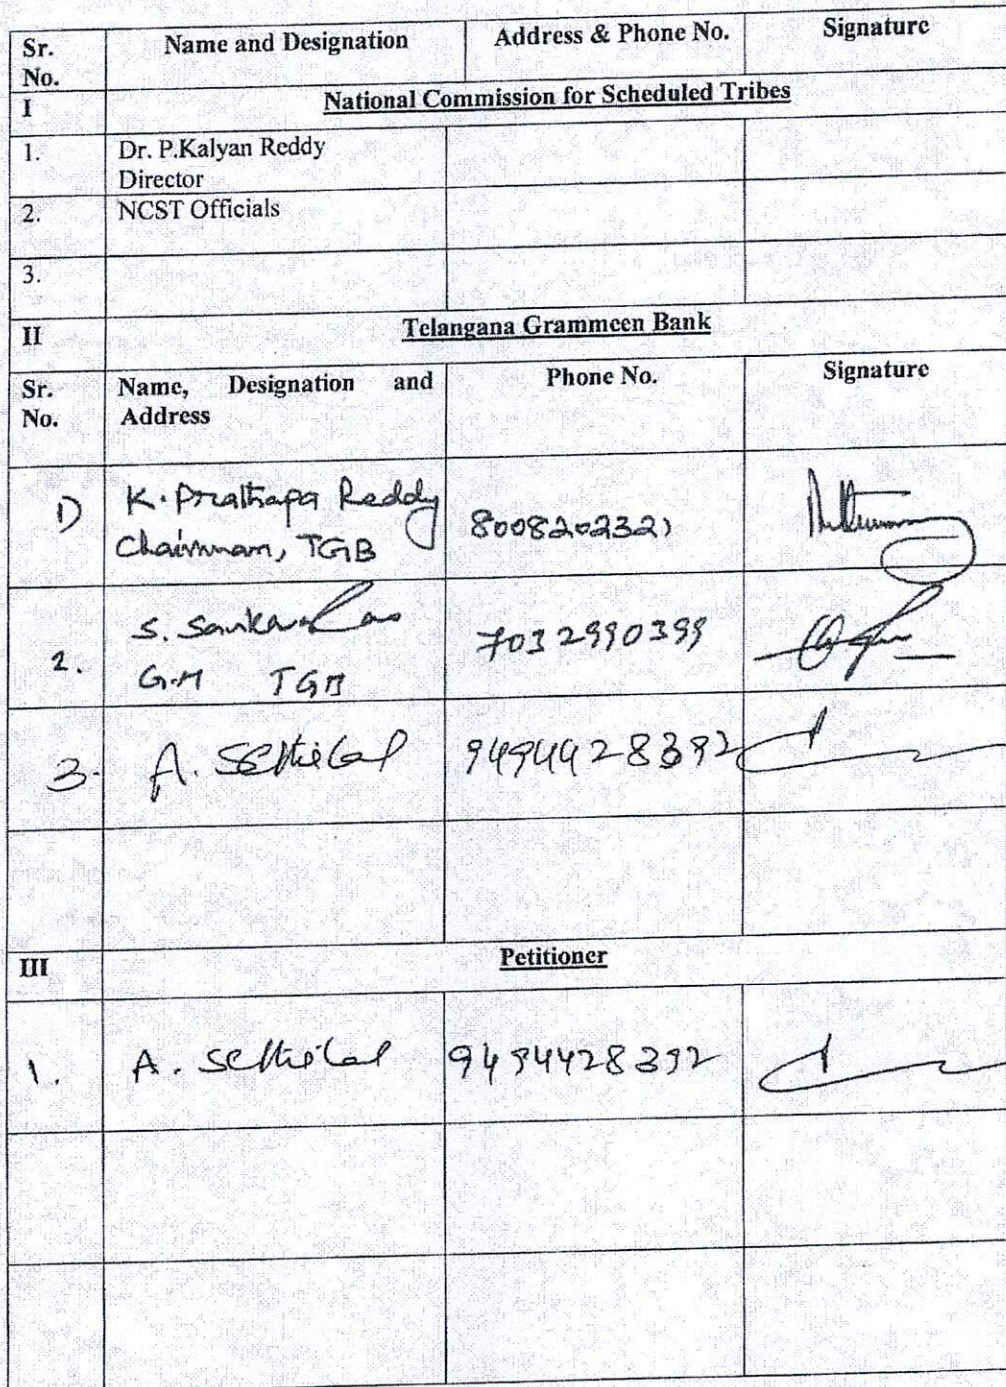 Sr. No.
Name and Designation
Address & Phone No.
Signature
I
National Commission for Scheduled Tribes
1.
Dr. P.Kalyan Reddy
Director
2.
NCST Officials
3.
II
Telangana Grammeen Bank
Sr. No.
Name, Designation and Address
Phone No.
Signature
1)
K. Prathapa Reddy
Chairman, TGB
8008202321
2.
S. Sankar Rao
G.M TGB
7032990399
3.
A.
9494428392
III
Petitioner
1.
A.
9494428392